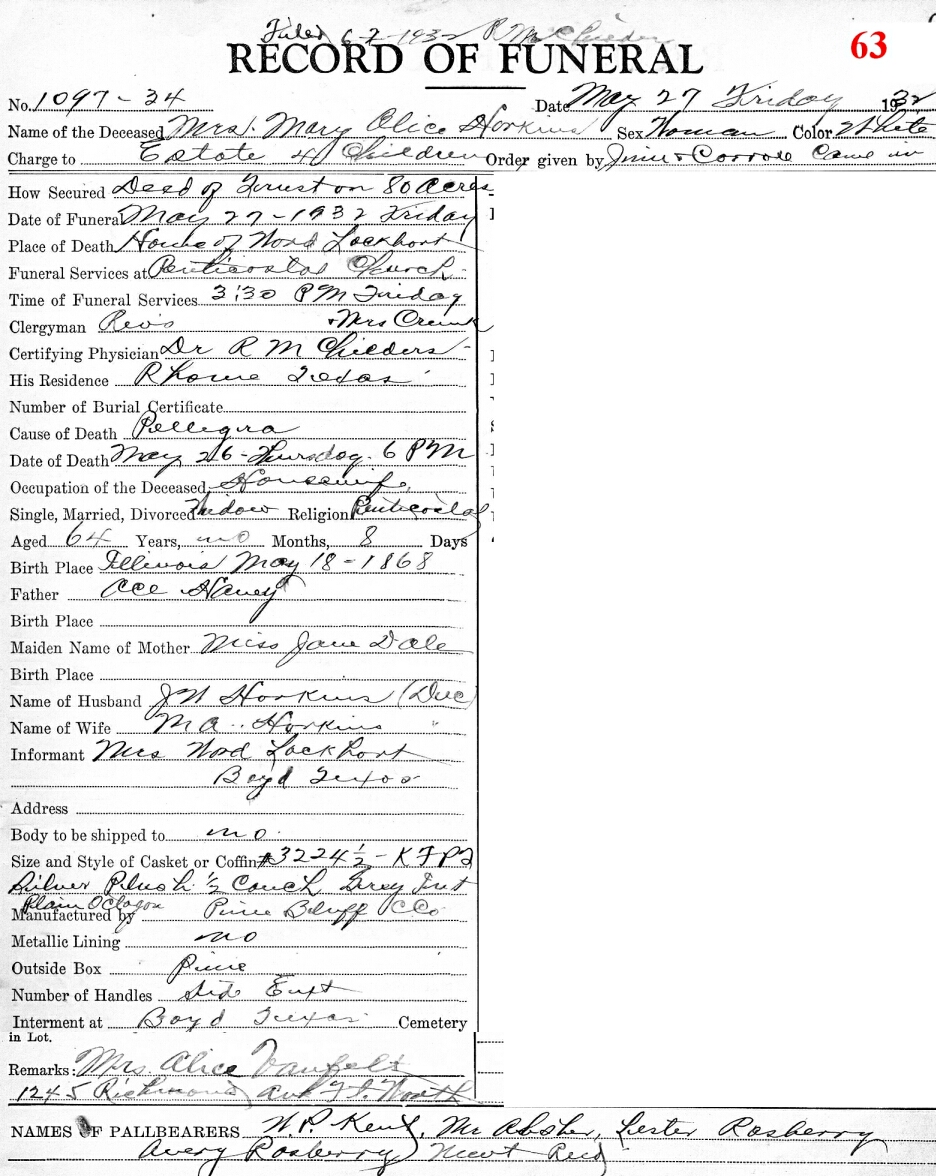 Filed 6-2-1932 R M Childers
63
RECORD OF FUNERAL
No. 1097-34 Date May 27 Friday 1932
Name of the Deceased Mrs. Mary Alice Horkins Sex Woman Color White
Charge to Estate 4 Children Order given by Jim & Came in
How Secured Deed of Trust on 80 Acres
Date of Funeral May 27-1932 Friday
Place of Death Home of Nord Lockhart
Funeral Services at Penticostal Church
Time of Funeral Services 3:30 PM Friday
Clergyman Revs & Mrs
Certifying Physician Dr R M Childers
His Residence Rhome Texas
Number of Burial Certificate
Cause of Death Pellegra
Date of Death May 26-Thursday. 6 PM
Occupation of the Deceased Housewife
Single, Married, Divorced Widow Religion Penticostal
Aged 64 Years, no Months, 8 Days
Birth Place Illinois May 18-1868
Father Ace Haney
Birth Place
Maiden Name of Mother Miss Jane Dale
Birth Place
Name of Husband Horkins (Dec)
Name of Wife M A Horkins "
Informant Mrs Nord Lockhart
Boyd Texas
Address
Body to be shipped to no
Size and Style of Casket or Coffin #3224½-
Silver Plush ½ Couch Grey Int
Plain Octagon
Manufactured by Pine Bluff C Co
Metallic Lining no
Outside Box Pine
Number of Handles Side Ext
Interment at Boyd Texas Cemetery
in Lot.
Remarks: Mrs. Alice Vanpelt
1245 Richmond Ave Ft. Worth
NAMES OF PALLBEARERS W. P. Kent, Mr Absher, Lester Rasberry
Avery Rasberry, Newt Reid